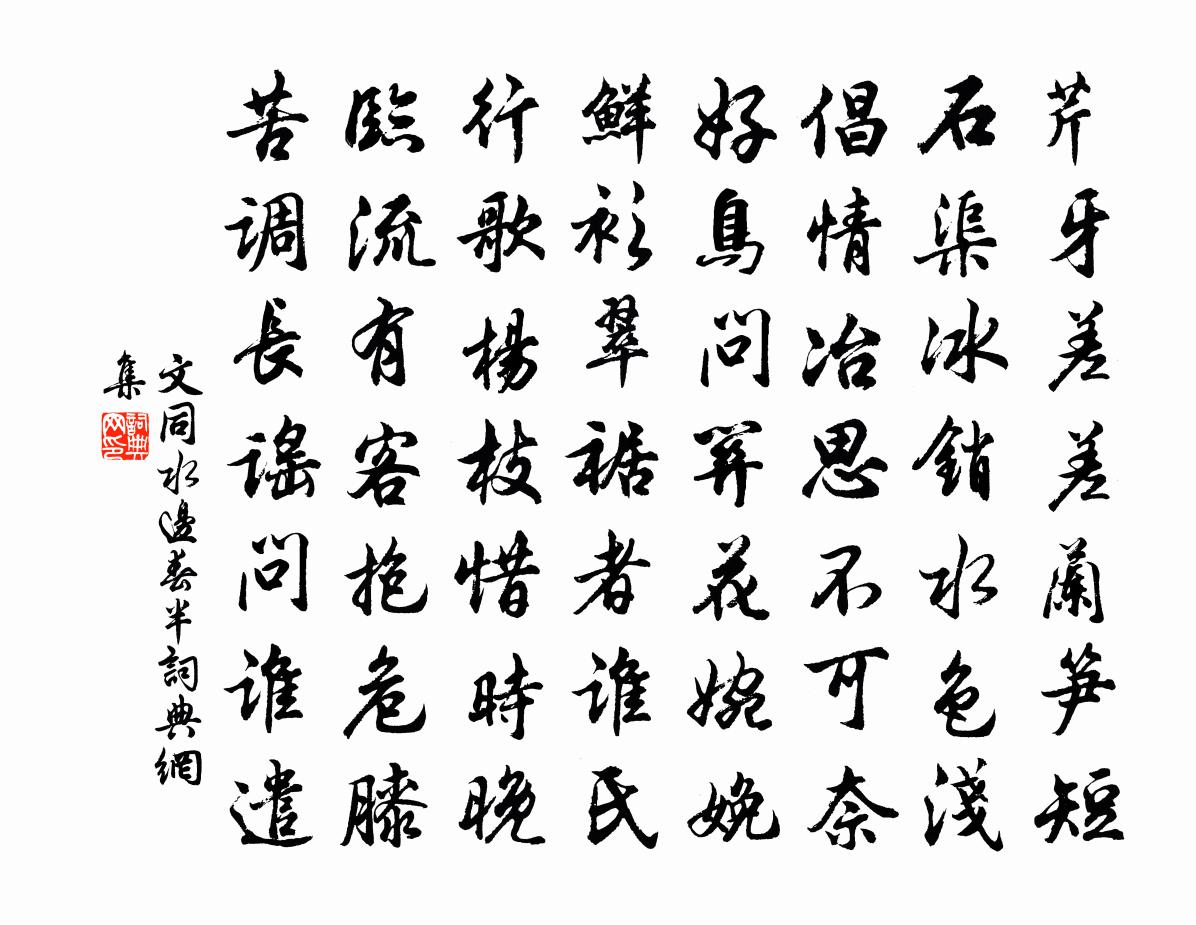 芹牙差差蘭笋短
石渠冰銷水色淺
倡情冶思不可奈
好鳥問関花婉娩
鮮衫翠裾者誰氏
行歌楊枝惜時晚
臨流有客抱危膝
苦調長謡問誰遣
文同水邊春半詞典網
集
詞典
网印